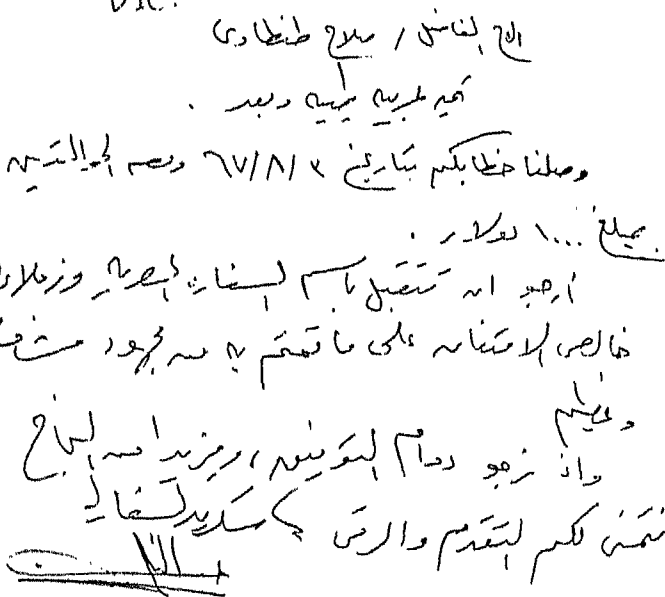 الاخ الفاضل / صلاح طنطاوى
تحيه عربيه طيبه وبعد .
وصلنا خطابكم بتاريخ ٦٧/٨/٣ ومعه الحوالتين
بمبلغ ١٠٠٠ دولار .
أرجو ان تتقبل باسم السفارة المصريه وزملائى
خالص الامتنان على ما قمتم به من مجهود
وعظيم
واذ نرجو دوام التوفيق ، ومزيدا من النجاح
نتمنى لكم التقدم والرقى